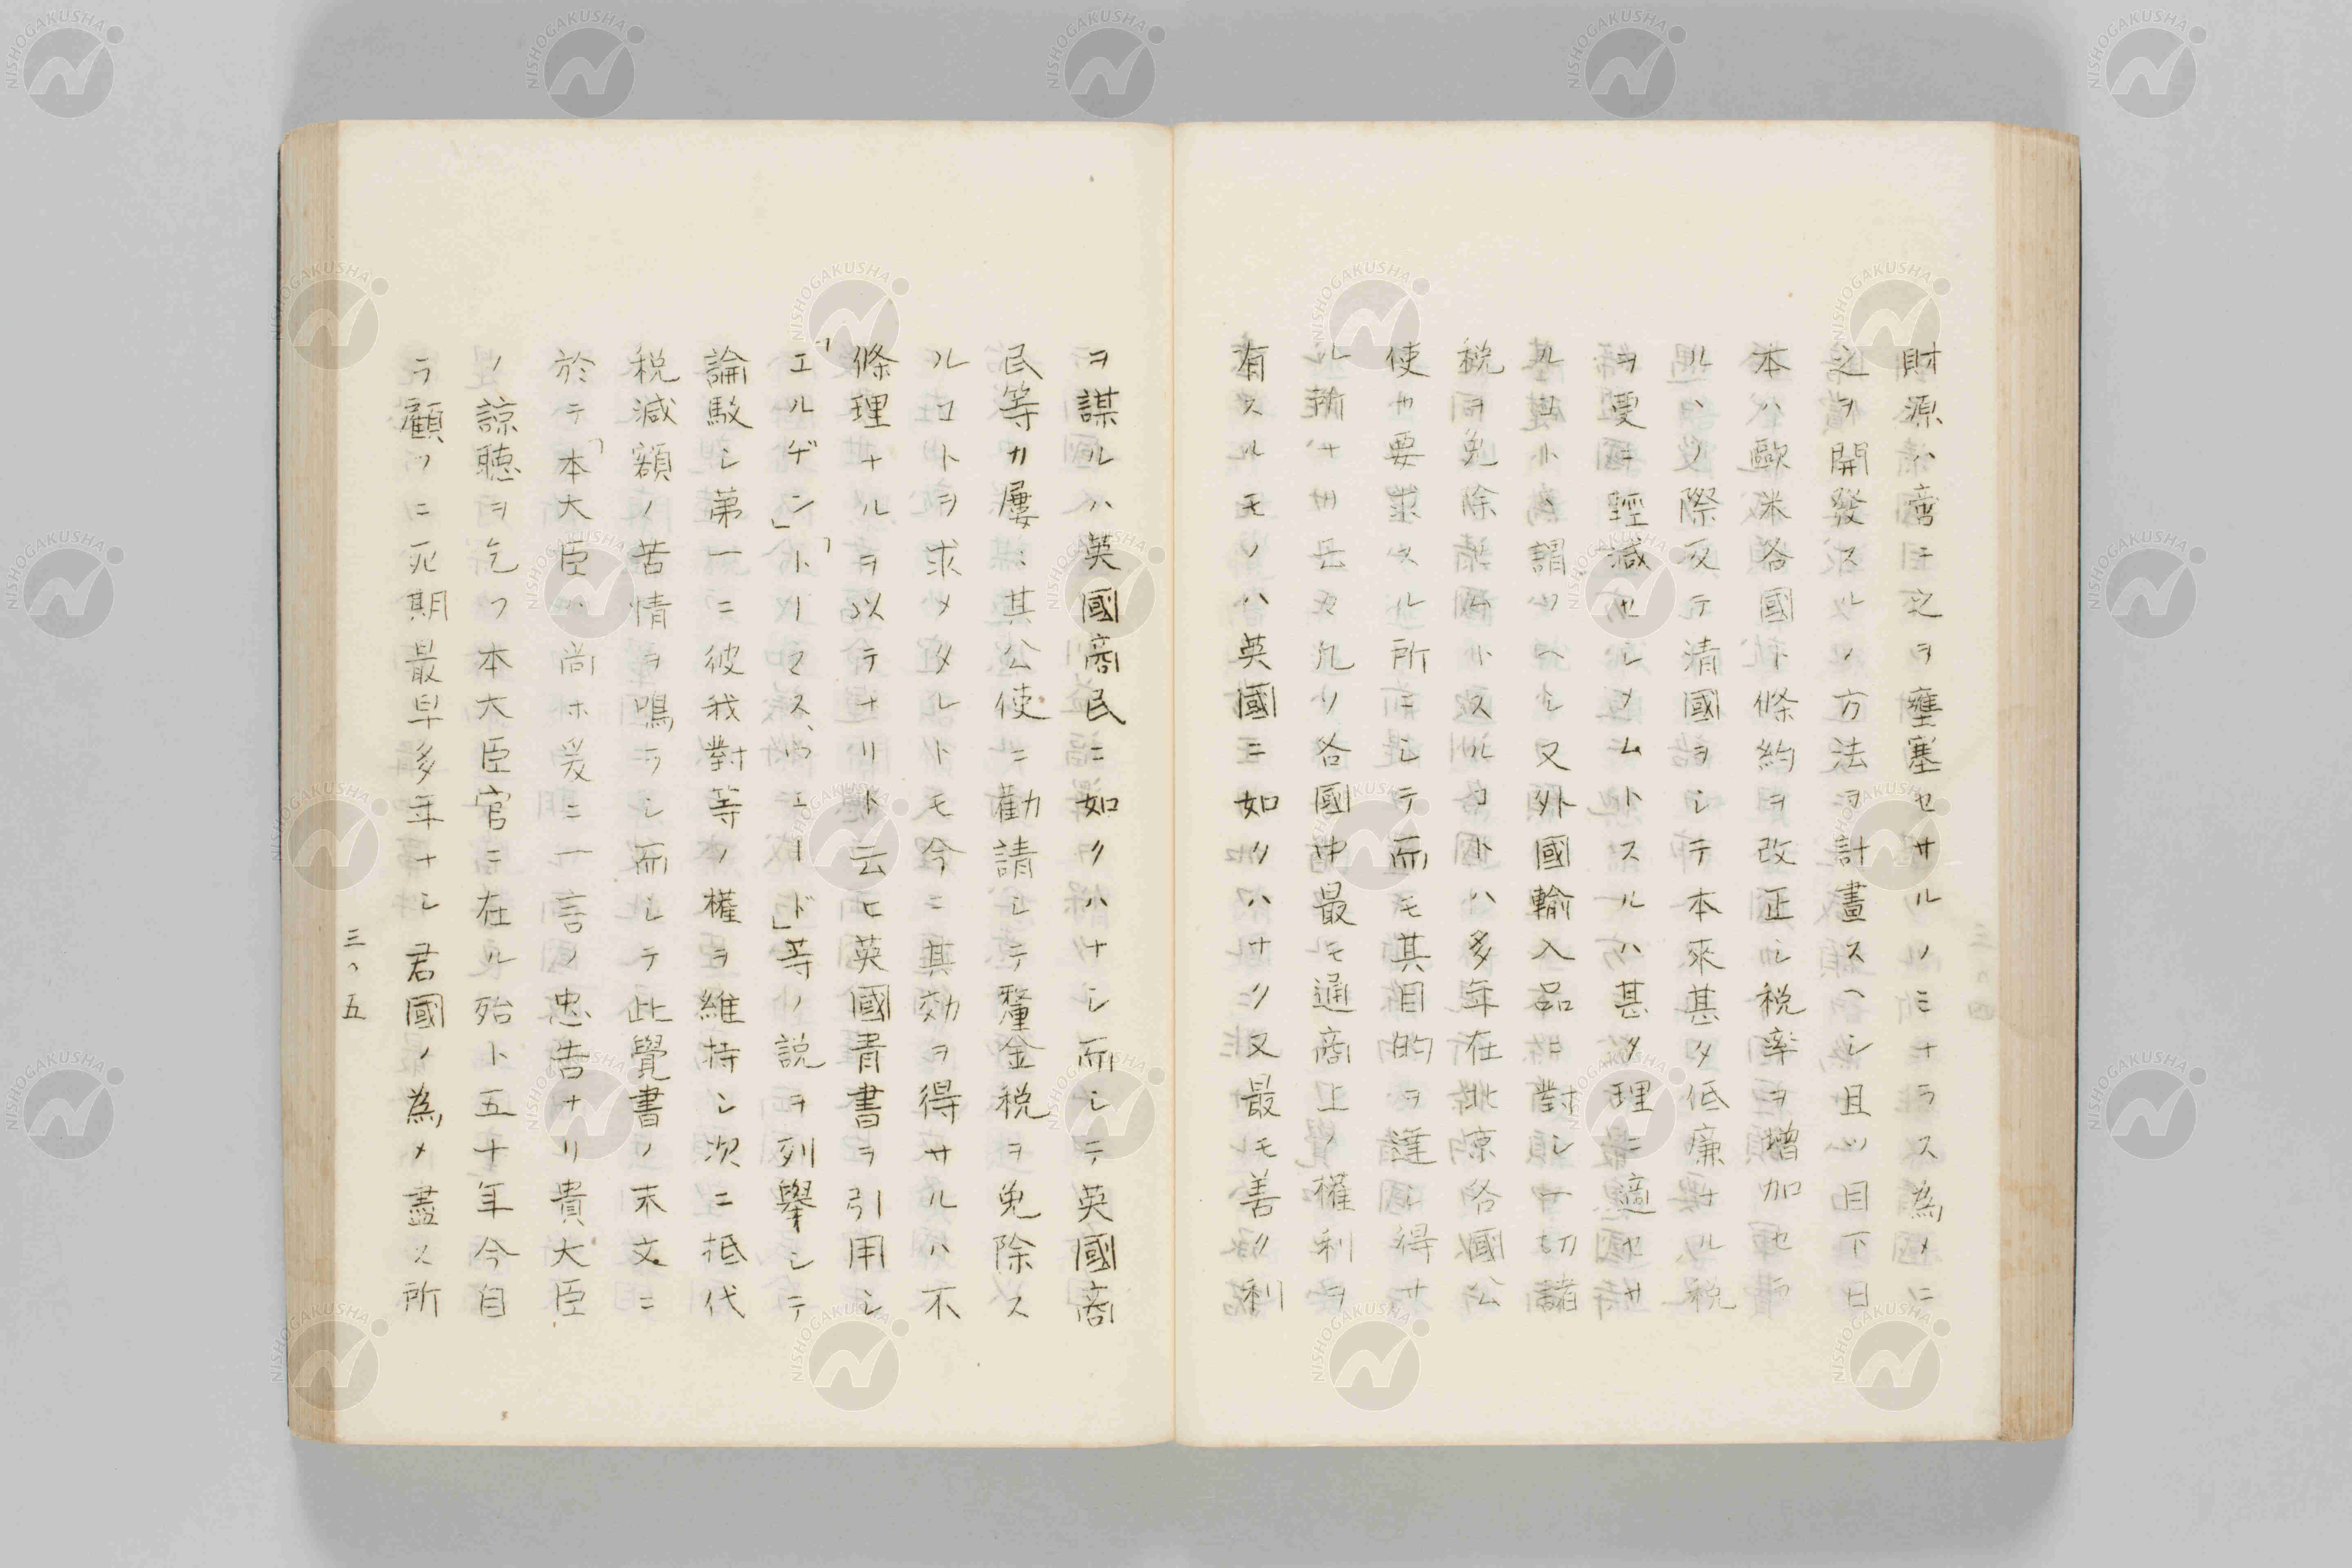 財源ハ啻ニ之ヲ壅塞セサルノミナラス為メニ
之ヲ開發スルノ方法ヲ計畫スヘシ且ツ目下日
本ハ歐米各國ト條約ヲ改正シ税率ヲ増加セン
ルヽノ際反テ清國ヲシテ本來甚タ低廉ナル税
ヲ更ニ輕減セシメムトスルハ甚タ理ニ適セサ
ルコトヽ謂ツヘシ又外國輸入品ニ對シ一切諸
税ヲ免除セムトスルコトハ多年在北京各國公
使ノ要求スル所ニシテ而モ其目的ヲ達シ得サ
ル所ナリ且又凡ソ各國中最モ通商上ノ權利ヲ
有スルモノハ英國ニ如クハナク又最モ善ク利
ヲ謀ルハ英國商民ニ如クハナシ而シテ英國商
民等カ屢〻其公使ニ勸請シテ釐金税ヲ免除ス
ルコトヲ求メタレトモ今ニ其効ヲ得サルハ不
條理ナルヲ以テナリト云ヒ英國青書ヲ引用シ
「エルヂン」「トーマス、ウェード」等ノ説ヲ列擧シテ
論駁シ第一ニ彼我對等ノ權ヲ維持シ次ニ抵代
税減額ノ苦情ヲ鳴ラシ而シテ此覺書ノ末文ニ
於テ「本大臣ハ尚ホ爰ニ一言ノ忠告ナリ貴大臣
ノ諒聴ヲ乞フ本大臣官ニ在ル殆ト五十年今自
ラ顧フニ死期最早多年ナシ君國ノ為メ盡ス所
三〇五
NISHOGAKUSHA